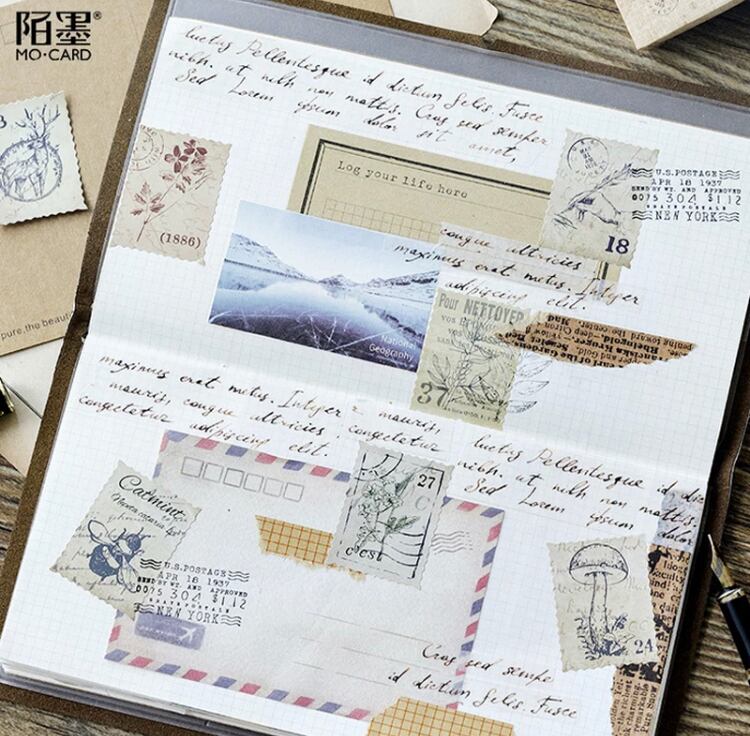 陌墨®
MO·CARD
luctus Pellentesque id dictum Felis. Fusce
nibh. ut nibh non mattis. Cras sed semper
Sed Lorem ipsum dolor sit amet,
Log your life here
(1886)
U.S.POSTAGE
APR 18 1937
SEND BY WT. AND APPROVED
0075 304 $112
NEW YORK
18
congue ultricies
maximus erat metus. Integer
adipiscing elit.
National
Geography
Pour NETTOYER
VOS
37
pure,the beaut
maximus erat metus. Integer
mauris, congue ultricies. mauris,
consectetur adipiscing elit. consectetur
luctus Pellentesque id dic
nibh. ut nibh non mattis.
Sed Lorem ipsum dolor
27
C
c'est
Carmina
U.S.POSTAGE
APR 18 1937
SEND BY WT. AND APPROVED
0075 304 $112
NEW YORK
24
Cras sed sempe
id dictum Felis. Fusce